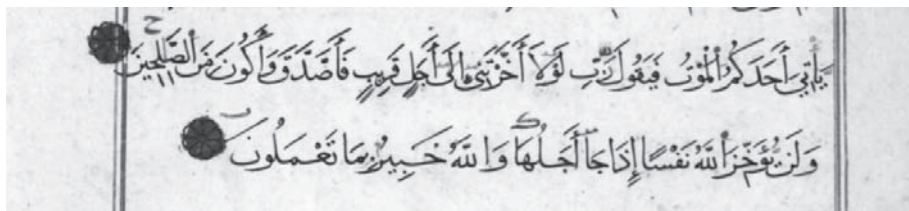 يَأْتِيَ أَحَدَكُمُ الْمَوْتُ فَيَقُولَ رَبِّ لَوْلَا أَخَّرْتَنِي إِلَى أَجَلٍ قَرِيبٍ فَأَصَّدَّقَ وَأَكُونَ مِنَ الصَّلِحِينَ
وَلَنْ يُؤَخِّرَ اللَّهُ نَفْسًا إِذَا جَا أَجَلُهَا وَاللَّهُ خَبِيرٌ بِمَا تَعْمَلُونَ